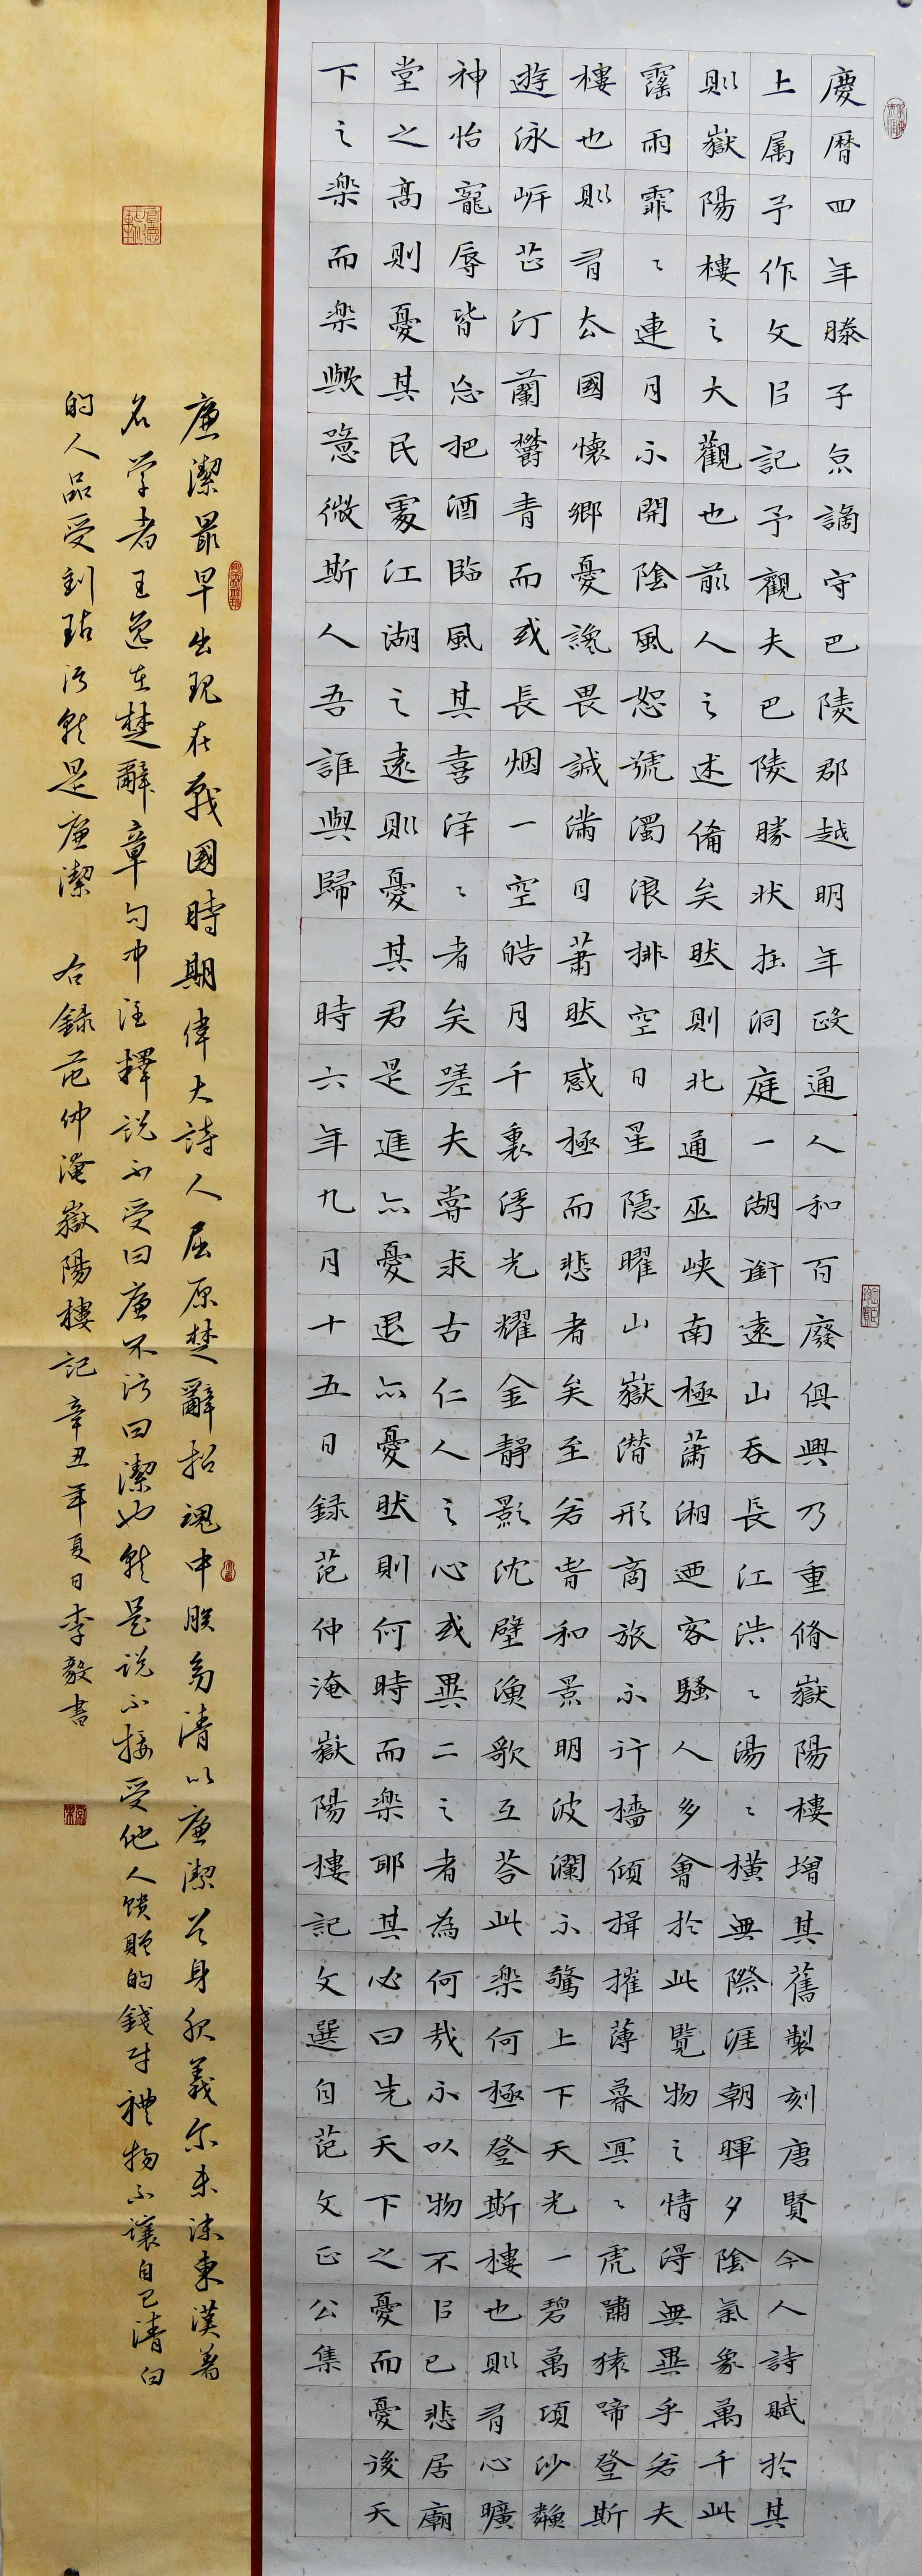 慶曆四年滕子京謫守巴陵郡越明年政通人和百廢俱興乃重脩嶽陽樓增其舊製刻唐賢今人詩賦於其
上属予作文㠯記予觀夫巴陵勝狀在洞庭一湖銜遠山吞長江浩〻湯〻橫無際涯朝暉夕陰氣象萬千此
則嶽陽樓之大觀也前人之述備矣然則北通巫峽南極蕭湘遷客騷人多會於此覽物之情得無異乎若夫
霪雨霏〻連月不開陰風怒號濁浪排空日星隱曜山嶽潛形商旅不行檣傾揖摧薄暮冥〻虎嘯猿啼登斯
樓也則有去國懷鄉憂讒畏譏滿目蕭然感極而悲者矣至若春和景明波瀾不驚上下天光一碧萬頃沙鱗
遊泳岸芷汀蘭鬱青而或長烟一空皓月千里浮光耀金靜影沈璧漁歌互荅此樂何極登斯樓也則有心曠
神怡寵辱皆忘把酒臨風其喜洋〻者矣嗟夫嘗求古仁人之心或異二之者為何哉不以物不㠯己悲居廟
堂之高則憂其民處江湖之遠則憂其君是進亦憂退亦憂然則何時而樂耶其必曰先天下之憂而憂後天
下之樂而樂歟噫微斯人吾誰與歸 時六年九月十五日錄范仲淹嶽陽樓記文選自范文正公集
廉潔最早出現在戰國時期偉大詩人屈原楚辭招魂中朕幼清以廉潔兮身服義尔未沬東漢著
名學者王逸在楚辭章句中注釋說不受曰廉不污曰潔也就是說不接受他人饋贈的錢財禮物不讓自己清白
的人品受到玷污就是廉潔 右錄范仲淹嶽陽樓記辛丑年夏日李毅書